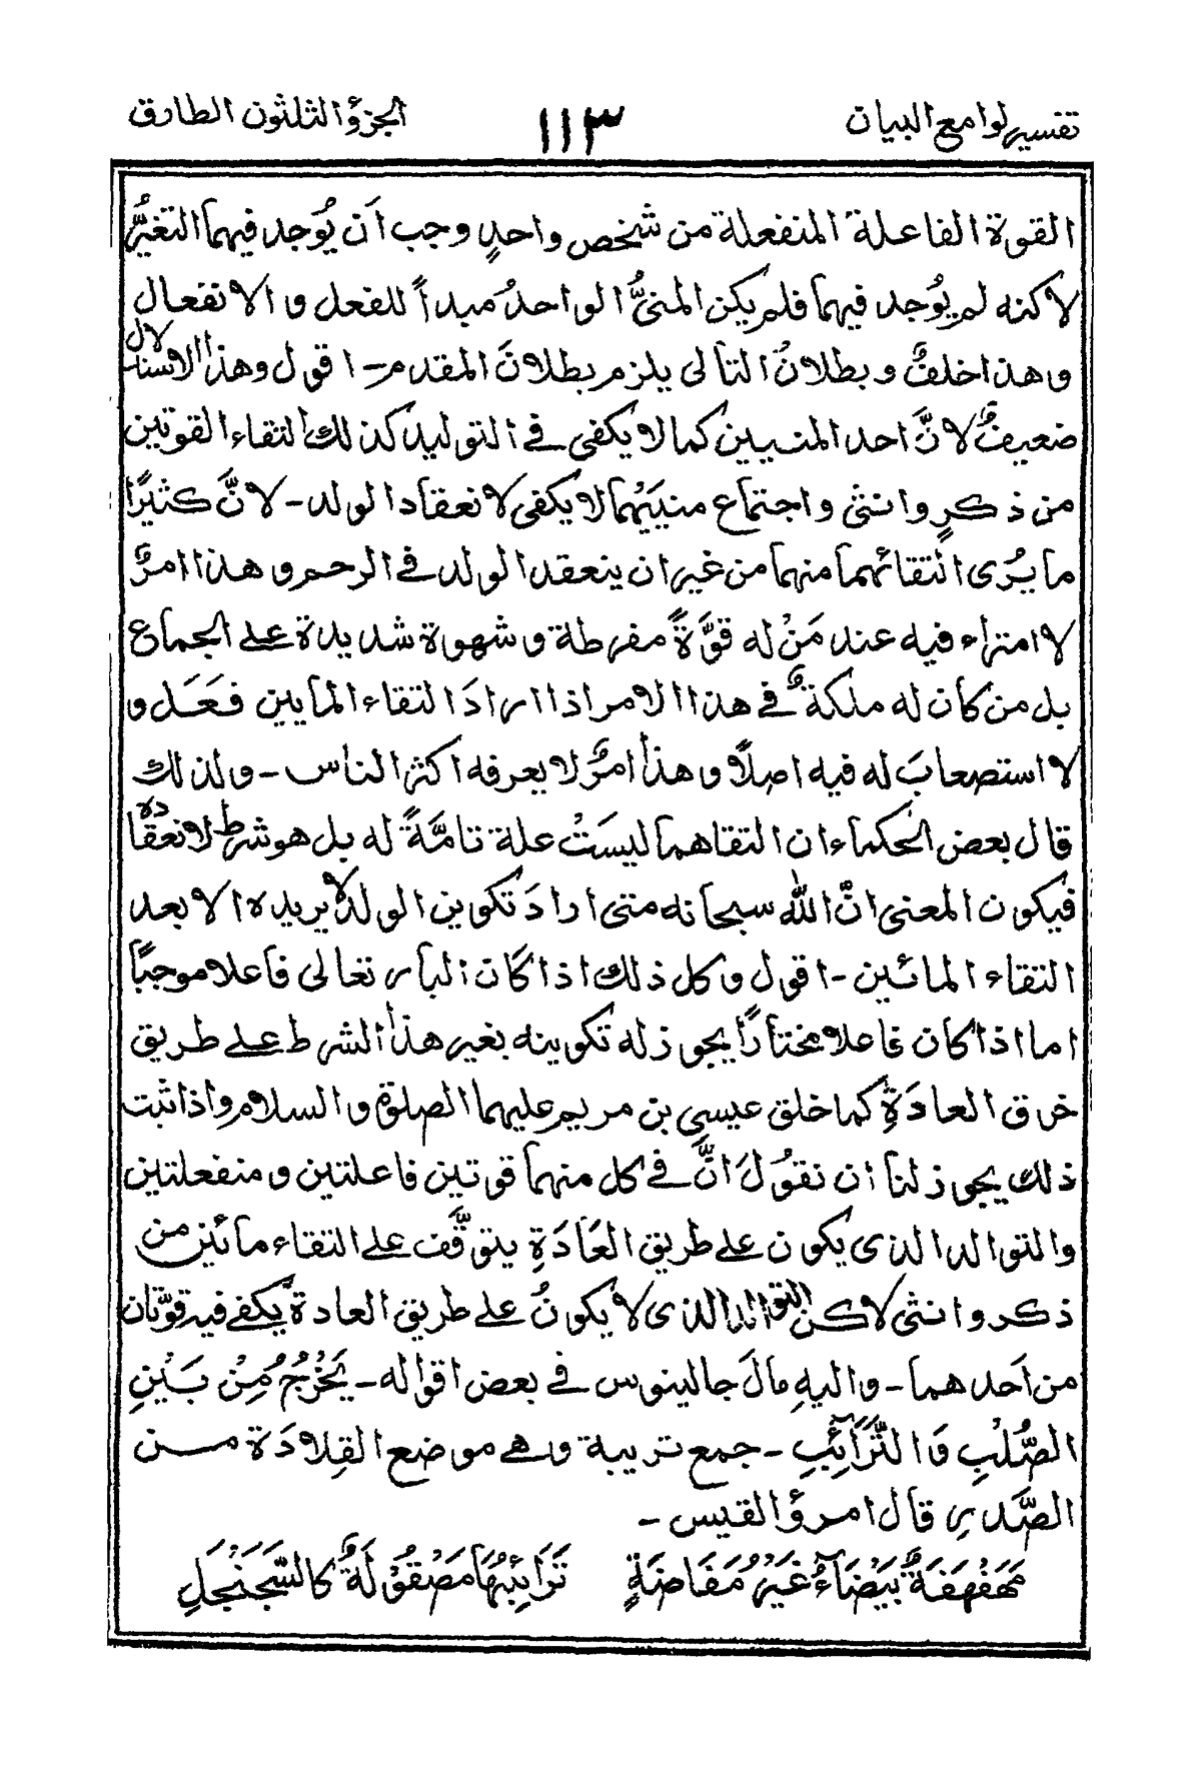 تفسير لوامع البيان ١١٣ الجزؤ الثلثون الطارق
القوة الفاعلة المنفعلة من شخص واحدٍ وجب أن يُوجد فيهما التغيُّرُ
لاكنه لم يُوجد فيهما فلم يكن المنيُّ الواحدُ مبدأً للفعل و الانفعال
وهذا خلفٌ و بطلانُ التالى يلزم بطلانَ المقدم - اقول وهذا الاستدلال
ضعيفٌ لانَّ احد المنيين كما لا يكفى فى التوليد كذلك التقاء القوتين
من ذكرٍ وانثى واجتماع منييَهُما لا يكفى لانعقاد الولد - لانَّ كثيرًا
ما يُرى التقائهما منهما من غير ان ينعقد الولد فى الرحم و هذا امرٌ
لا امتراء فيه عند مَنْ له قوَّةً مفرطة و شهوة شديدة على الجماع
بل من كان له ملكةٌ فى هذا الامر اذا ارادَ التقاء المايين فَعَل و
لا استصعابَ له فيه اصلًا وهذا امرٌ لا يعرفه اكثر الناس - ولذلك
قال بعض الحكماء ان التقاهما ليسَتْ علة تامَّةً له بل هو شرط لانعقاده
فيكون المعنى انّ الله سبحانه متى ارادَ تكوين الولد لا يريده الا بعد
التقاء المائين - اقول و كل ذلك اذا كان البارى تعالى فاعلا موجبًا
اما اذا كان فاعلا مختارًا يجوز له تكوينه بغير هذا الشرط على طريق
خرق العادَةِ كما خلق عيسى بن مريم عليهما الصلوٰة و السلام واذا ثبت
ذلك يجوز لنا ان نقولَ انَّ فى كل منهما قوتين فاعلتين و منفعلتين
والتوالد الذى يكون على طريق العَادَةِ يتوقَّف على التقاء مائين من
ذكر وانثى لاكن التوالد الذى لا يكونُ على طريق العادة يكفى فيه قوّتان
من اَحدهما - واليهِ مالَ جالينوس فى بعض اقواله - يَخْرُجُ مِنْ بَيْنِ
الصُّلْبِ وَالتَّرَآئِبِ - جمع تريبة وهى موضع القِلادَة مــن
الصَّدرِ قال امرؤ القيس -
مَهَفْهَفَةٌ بَيْضَآءُ غَيْرُ مَفَاضَةٍ تَرَائِبُهَا مَصْقُوْلَةٌ كَالسَّجَنْجَلِ